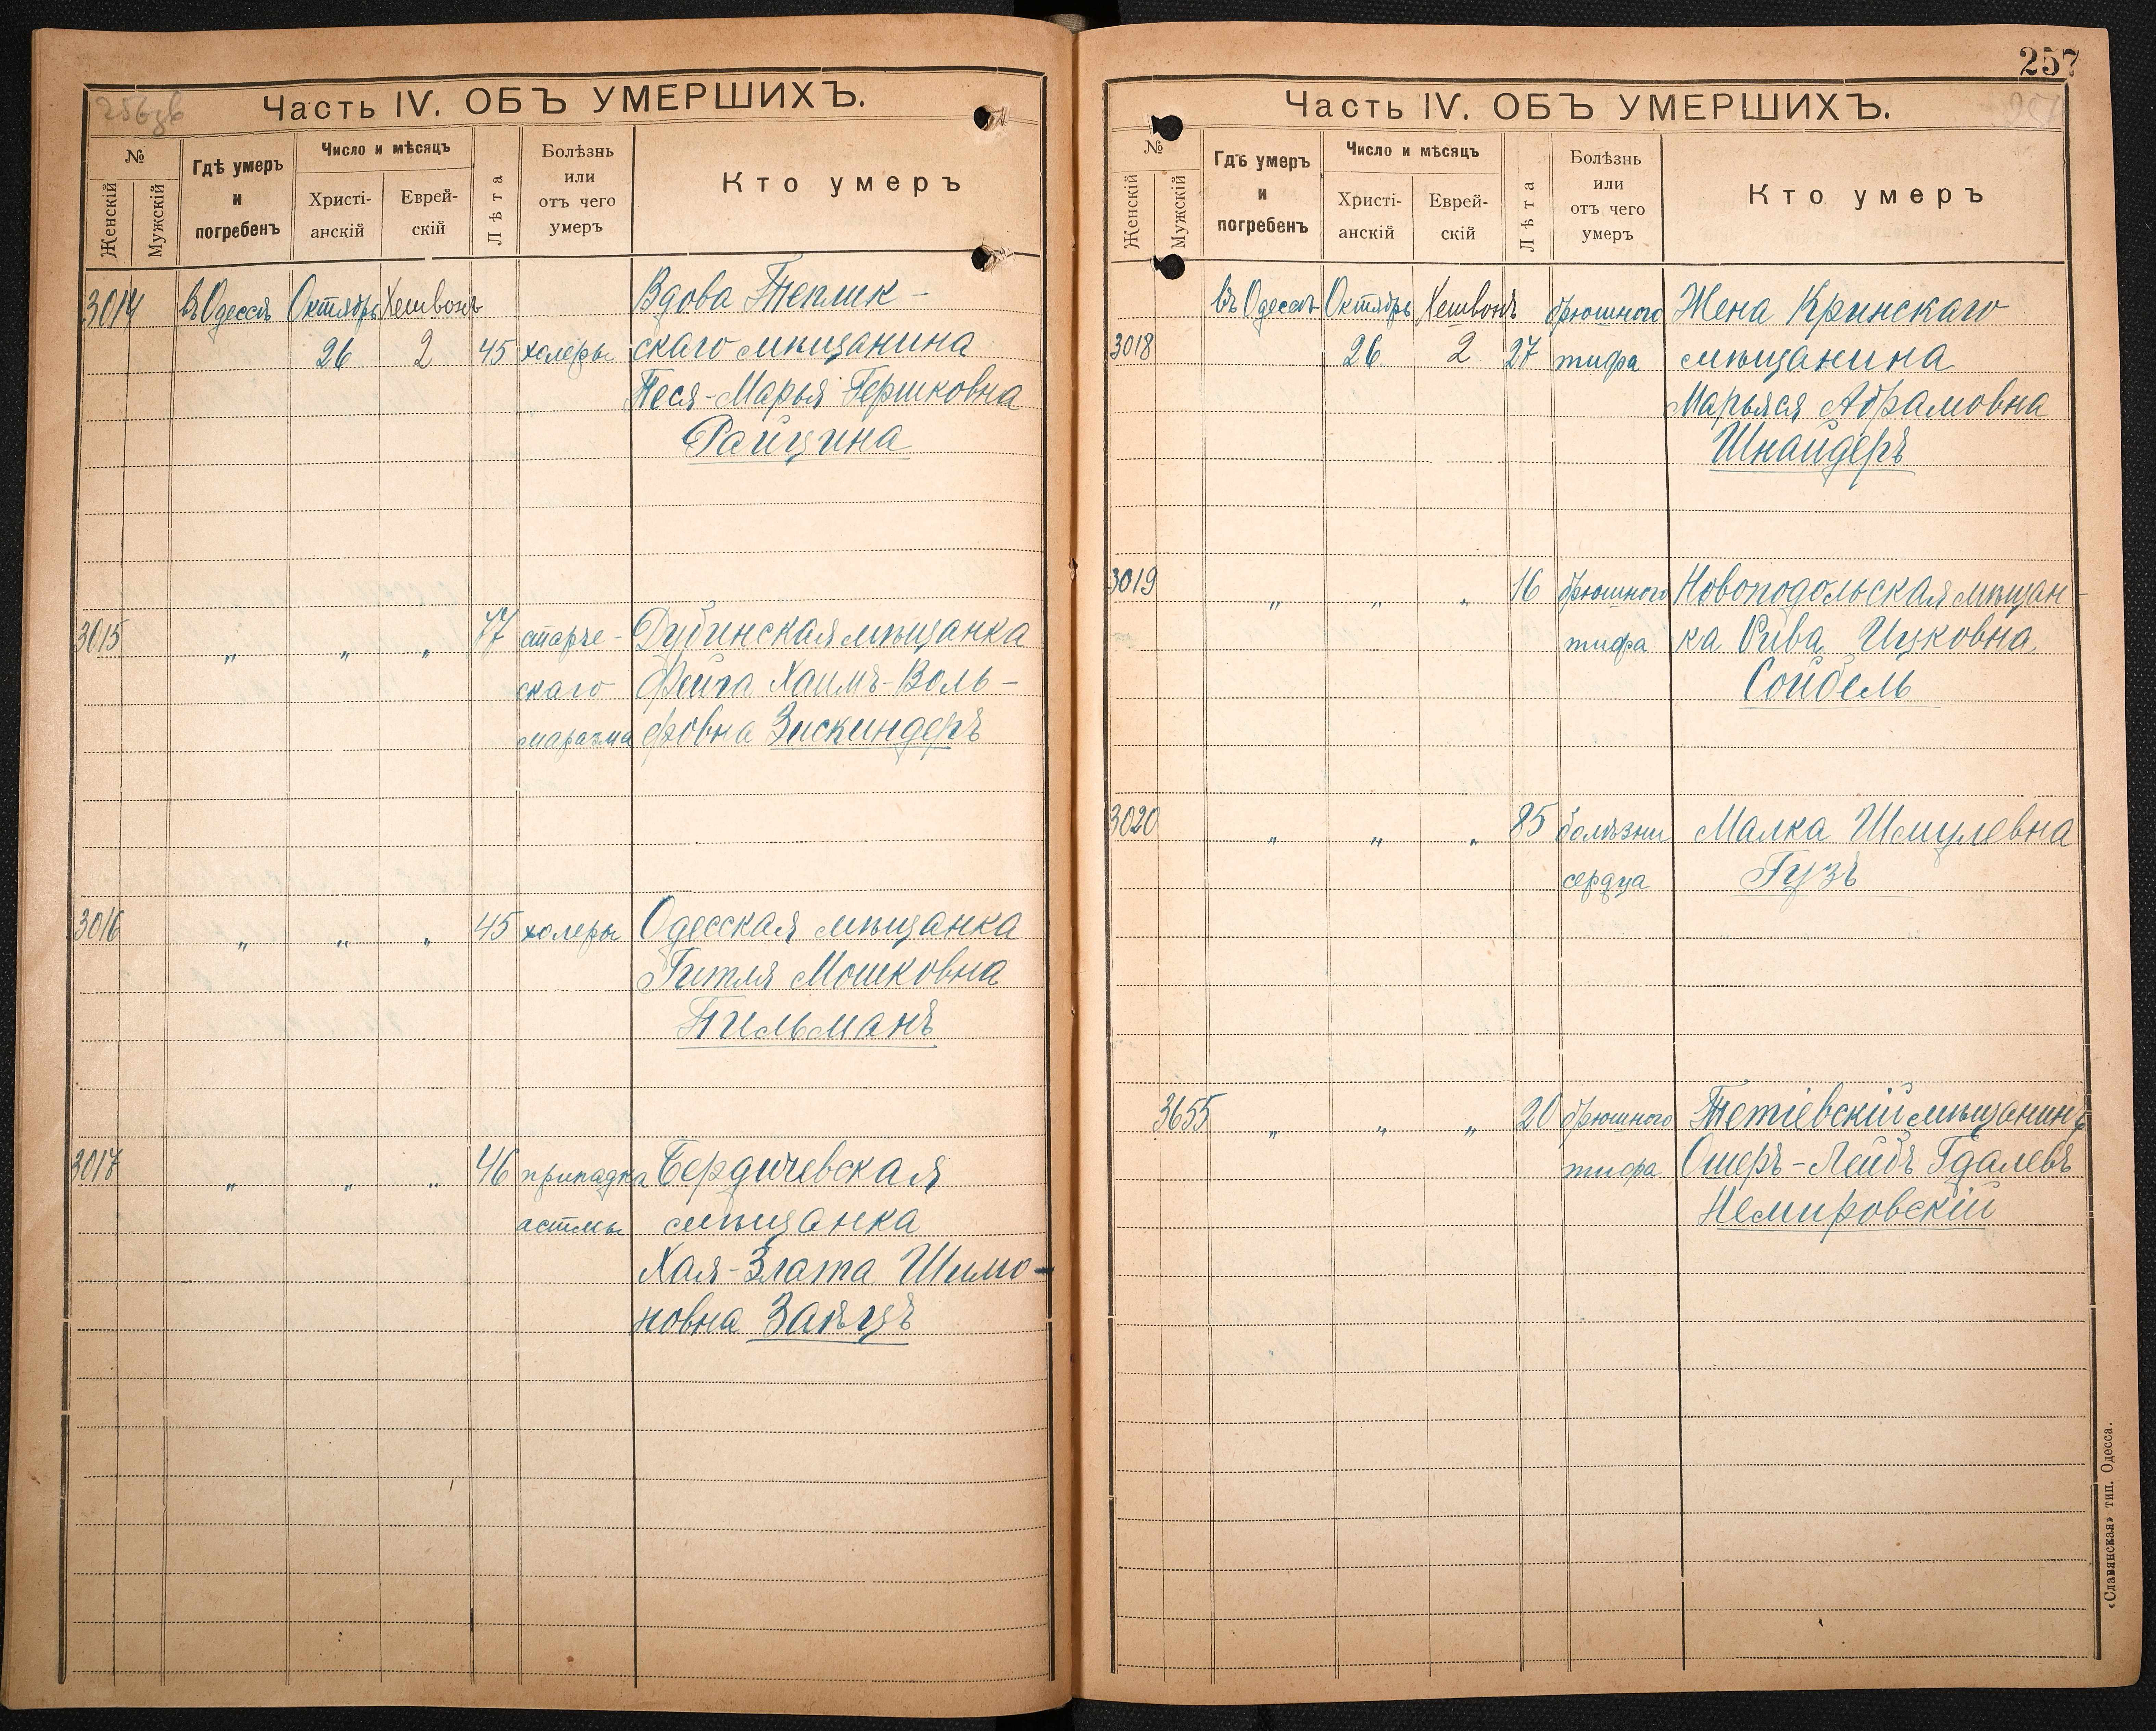 256об
Часть IV. ОБЪ УМЕРШИХЪ.
№
Женскій
Мужскій
Гдѣ умеръ
и
погребенъ
Число и мѣсяцъ
Христі-
анскій
Еврей-
скій
Лѣта
Болѣзнь
или
отъ чего
умеръ
Кто умеръ
3014 въ Одессѣ Октябрь Хешвонъ Вдова Теплик-
26 2 45 холеры скаго мѣщанина
Песя-Марья Гершковна
Райцина
3015 „ „ „ 77 старче- Дубинская мѣщанка
скаго Фейга Хаимъ-Воль-
маразма фовна Зискиндеръ
3016 „ „ „ 45 холеры Одесская мѣщанка
Гитля Мошковна
Тильманъ
3017 „ „ „ 46 припадка Бердичевская
астмы мѣщанка
Хая-Злата Шимо-
новна Заяцъ
257
257
Часть IV. ОБЪ УМЕРШИХЪ.
№
Женскій
Мужскій
Гдѣ умеръ
и
погребенъ
Число и мѣсяцъ
Христі-
анскій
Еврей-
скій
Лѣта
Болѣзнь
или
отъ чего
умеръ
Кто умеръ
въ Одессѣ Октябрь Хешвонъ брюшного Жена Кринскаго
3018 26 2 27 тифа мѣщанина
Марьяся Абрамовна
Шнайдеръ
3019 „ „ „ 16 брюшного Новоподольская мѣщан-
тифа ка Рива Ицковна
Сойбель
3020 „ „ „ 85 болѣзни Малка Шмулевна
сердца Гузъ
3655 „ „ „ 20 брюшного Тетіевскій мѣщанинъ
тифа Ошеръ-Лейбъ Гдалевъ
Немировскій
«Славянская» тип. Одесса.